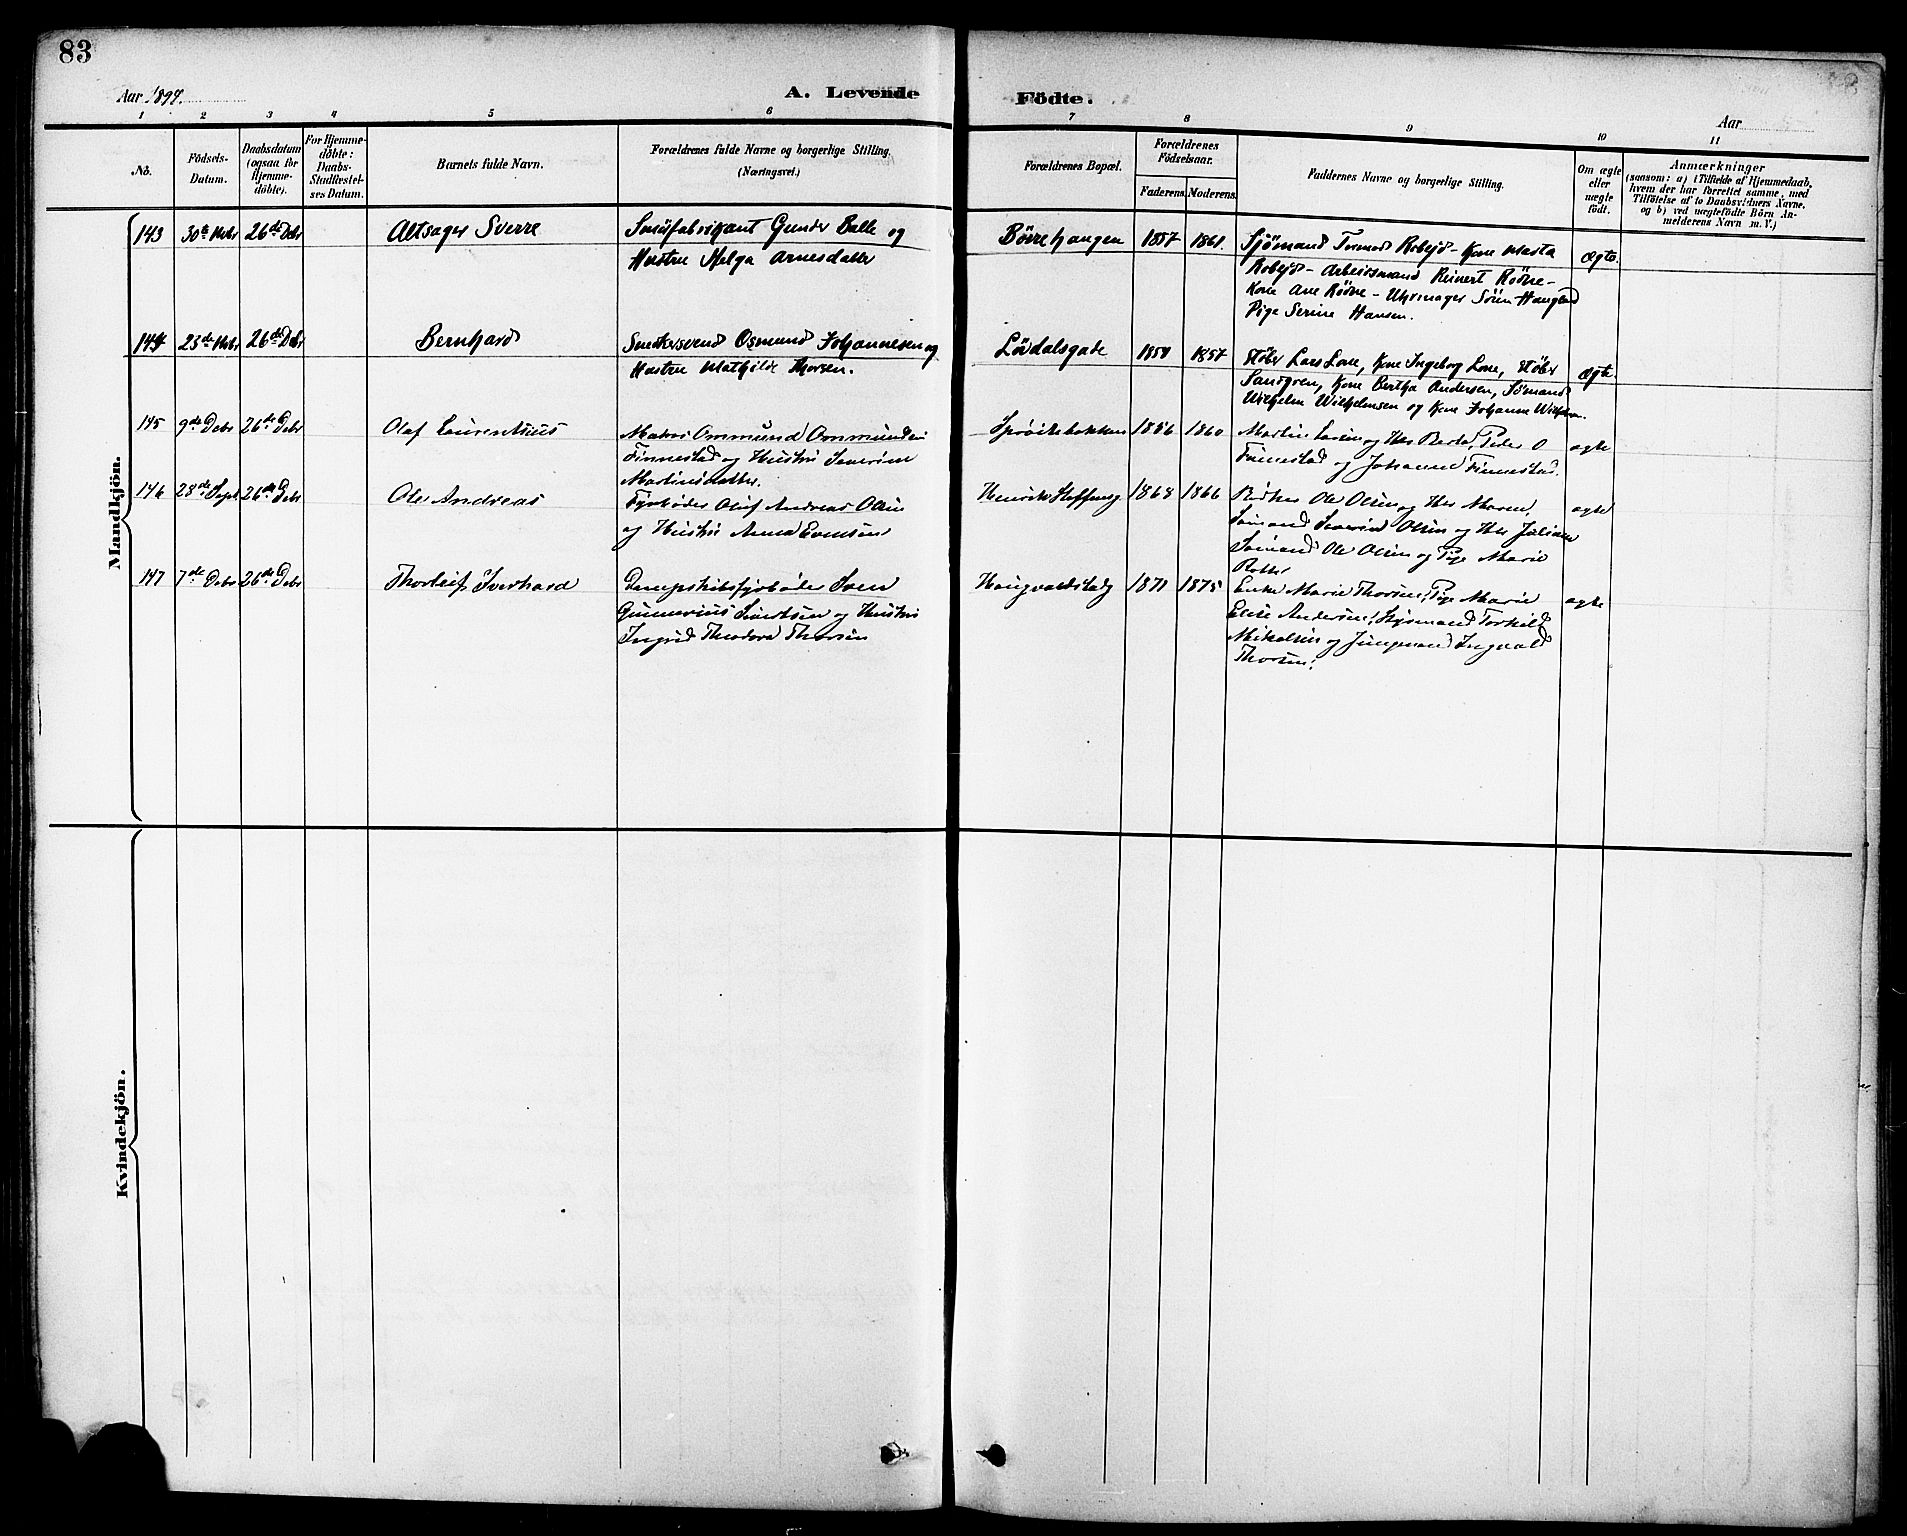 83
Aar 1897.
A. Levende Födte.
Aar
1 2 3 4 5 6 7 8 9 10 11
No.
Födsels-
Datum.
Daabsdatum
(ogsaa for
Hjemme-
döbte).
For Hjemme-
döbte:
Daabs-
Stadfæstel-
ses Datum.
Barnets fulde Navn.
Forældrenes fulde Navne og borgerlige Stilling.
(Næringsvei.)
Forældrenes Bopæl.
Forældrenes
Födselsaar.
Faderens. Moderens.
Faddernes Navne og borgerlige Stilling.
Om ægte
eller
uægte
födt.
Anmærkninger
(saasom: a) i Tilfælde af Hjemmedaab,
hvem der har forrettet samme, med
Tilföielse af to Daabsvidners Navne,
og b) ved uægtefödte Börn An-
melderens Navn m. V.)
Mandkjön.
143 30te Nvbr 26de Dcbr Altsager Sverre
Smörfabrikant Gunder Balle og
Hustru Helga Arnesdatter
Börrehaugen 1857 1861.
Sjömand Tormod Robejd - Kone Marta
Robejd - Arbeidsmand Reinert Rödne -
Kone Ane Rödne - Uhrmager Sören Haugland
Pige Serine Hansen.
Ægte.
144 23de Nvbr 26de Dcbr Bernhard
Snedkersvend Osmund Johannesen og
Hustru Mathilde Thorsen.
Lövdalsgade 1850 1857
Støber Lars Lone, Kone Ingeborg Lone, Støber
Sandgren, Kone Bertha Andersen, Sømand
Wilhelm Wilhelmsen og Kone Johanne Wilhelmsen.
Ægte.
145 9de Dcbr 26de Dcbr Olaf Laurentius
Ommund Ommundsen
Finnestad og Hustru Severine
Martinsdatter.
1856 1860
Martin Larsen og Hus Berta, Peder O
Finnestad og Johanne Finnestad.
ægte
146 28de Sept 26de Dcbr Ole Andreas
Fyrbøder Oluf Andreas Olsen
og Hustru Anna Evensen
Henrik Steffensg 1868 1866
Ole Olsen og Hus Maren,
Sømand Severin Olsen og Hus Juliane
Sømand Ole Olsen og Pige Marie
ægte
147 7de Dcbr 26de Dcbr Thorleif Sverhard
Dampskibsfyrbøder Sven
Gunnerius Sivertsen og Hustru
Ingrid Theodora Thorsen
Haugvaldstadg 1871 1875
Enke Marie Thorsen, Pige Marie
Elise Andersen, Styrmand Torkild
Mikalsen og Jungmand Ingvald
Thorsen.
ægte
Kvindekjön.